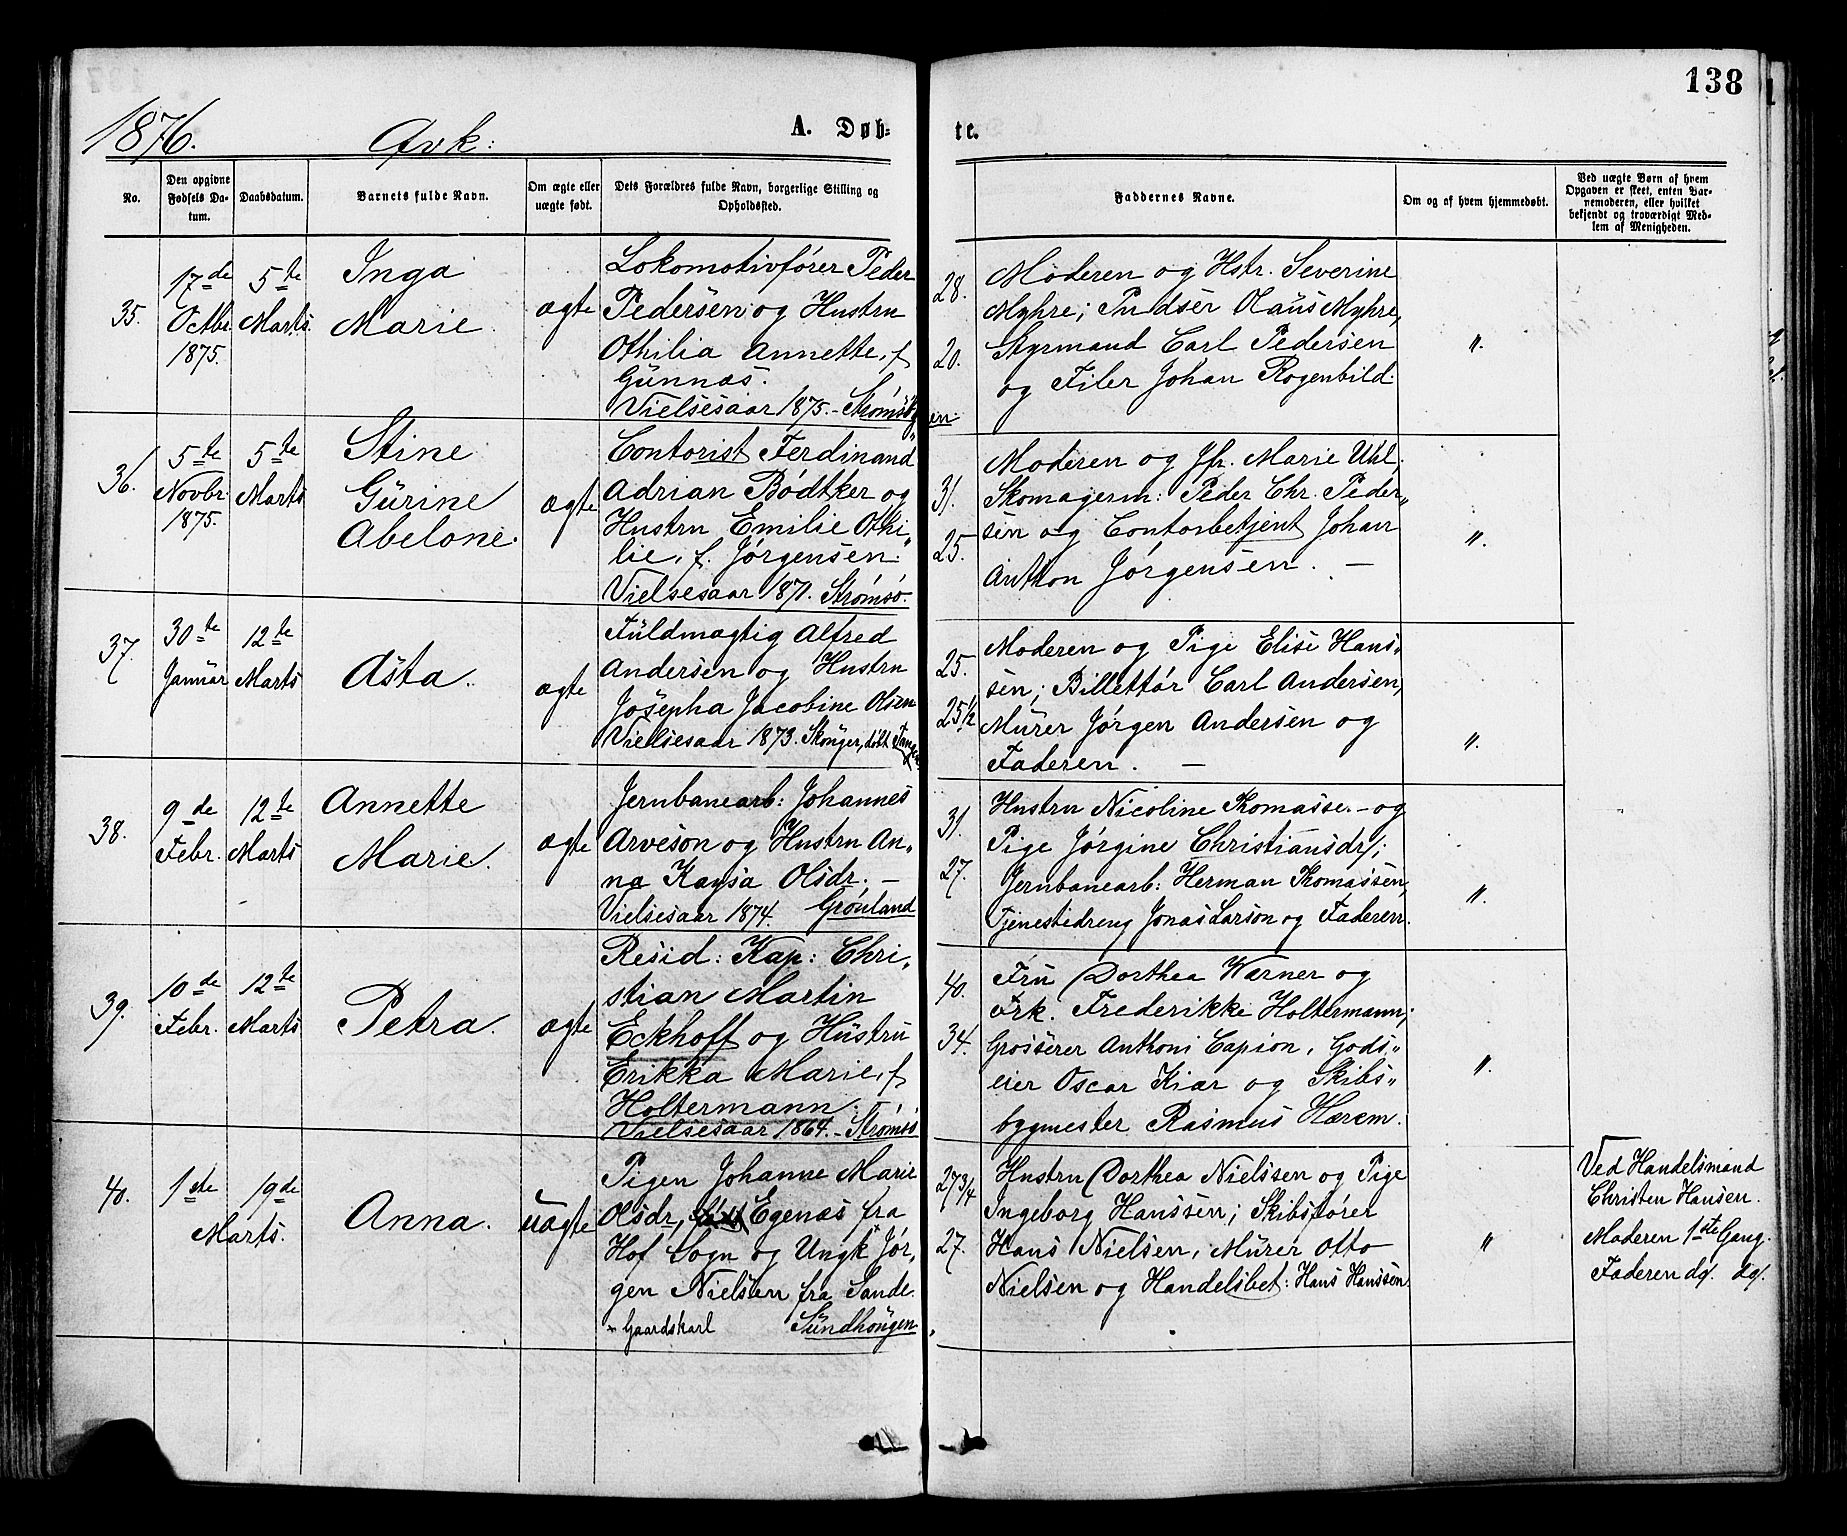 138
1876. Qvk: A. Døb- te.
No. Den opgivne Fødsels Datum. Daabsdatum. Barnets fulde Navn. Om ægte eller uægte født. Dets Forældres fulde Navn, borgerlige Stilling og Opholdssted. Faddernes Navne. Om og af hvem hjemmedøbt. Ved uægte Børn af hvem Opgaven er skeet, enten Barnemoderen, eller hvilket bekjendt og troværdigt Medlem af Menigheden.
35. 17de Octbr. 1875. 5te Marts. Inga Marie ægte
Lokomotivfører Peder
Pedersen og Hustru
Othilia Annette, f
Gunnæs.
Vielsesaar 1875. - Strømsø
28. 20.
Moderen og Hstr. Severine
Myhre; Pudser Olaus Myhre,
Styrmand Carl Pedersen
og Filer Johan Rogenbild-
en.
"
36. 5te Novbr. 1875. 5te Marts Stine Gurine Abelone. ægte
Contorist Ferdinand
Adrian Bødtker og
Hustru Emilie Othi„
lie, f. Jørgensen.
Vielsesaar 1871. Strømsø.
31. 25.
Moderen og Jfr. Marie Uhl;
Skomagerm: Peder Chr. Peder„
sen og Contorbetjent Johan
Anthon Jørgensen. —
".
37. 30te Januar 12te Marts Asta. ægte
Fuldmægtig Alfred
Andersen og Hustru
Josepha Jacobine Olsen
Vielsesaar 1873. Skouger, døbt Tangen
25. 25½
Moderen og Pige Elise Hans„
sen; Billettør Carl Andersen,
Murer Jørgen Andersen og
Faderen. —
".
38. 9de Febr. 12te Marts Annette Marie. ægte
Jernbanearb: Johannes
Arveson og Hustru An„
na Kaysa Olsdr. —
Vielsesaar 1874. Grønland
31. 27.
Hustru Nicoline Thomasse. - og
Pige Jørgine Christiansdr;
Jernbanearb: Herman Thomassen,
Tjenestedreng Jonas Larson og Faderen.
".
39. 10de Febr. 12te Marts Petra. ægte
Resid: Kap: Chri„
stian Martin
Eckhoff og Hustru
Erikka Marie, f
Holtermann.
Vielsesaar 1864. - Strømsø
40. 34.
Fru Dorthea Wærner og
Frk. Frederikke Holtermann;
Grosserer Anthoni Capion, Gods„
eier Oscar Kiær og Skibs„
bygmester Rasmus Hærem.
".
40. 1ste 19de Marts. Anna. uægte
Pigen Johanne Marie
Olsdr, Egenæs fra
Hof Sogn og Ungk Jør„
gen Nielsen fra Sande.
- Gaardskarl Sundhougen.
27¾ 27.
Hustru Dorthea Nielssen og Pige
Ingeborg Hanssen; Skibsfører
Hans Nielsen, Murer Otto
Nielsen og Handelsbet: Hans Hanssen
"
Ved Handelsmand
Christen Hansen.
Moderen 1ste Gang.
Faderen do. do.